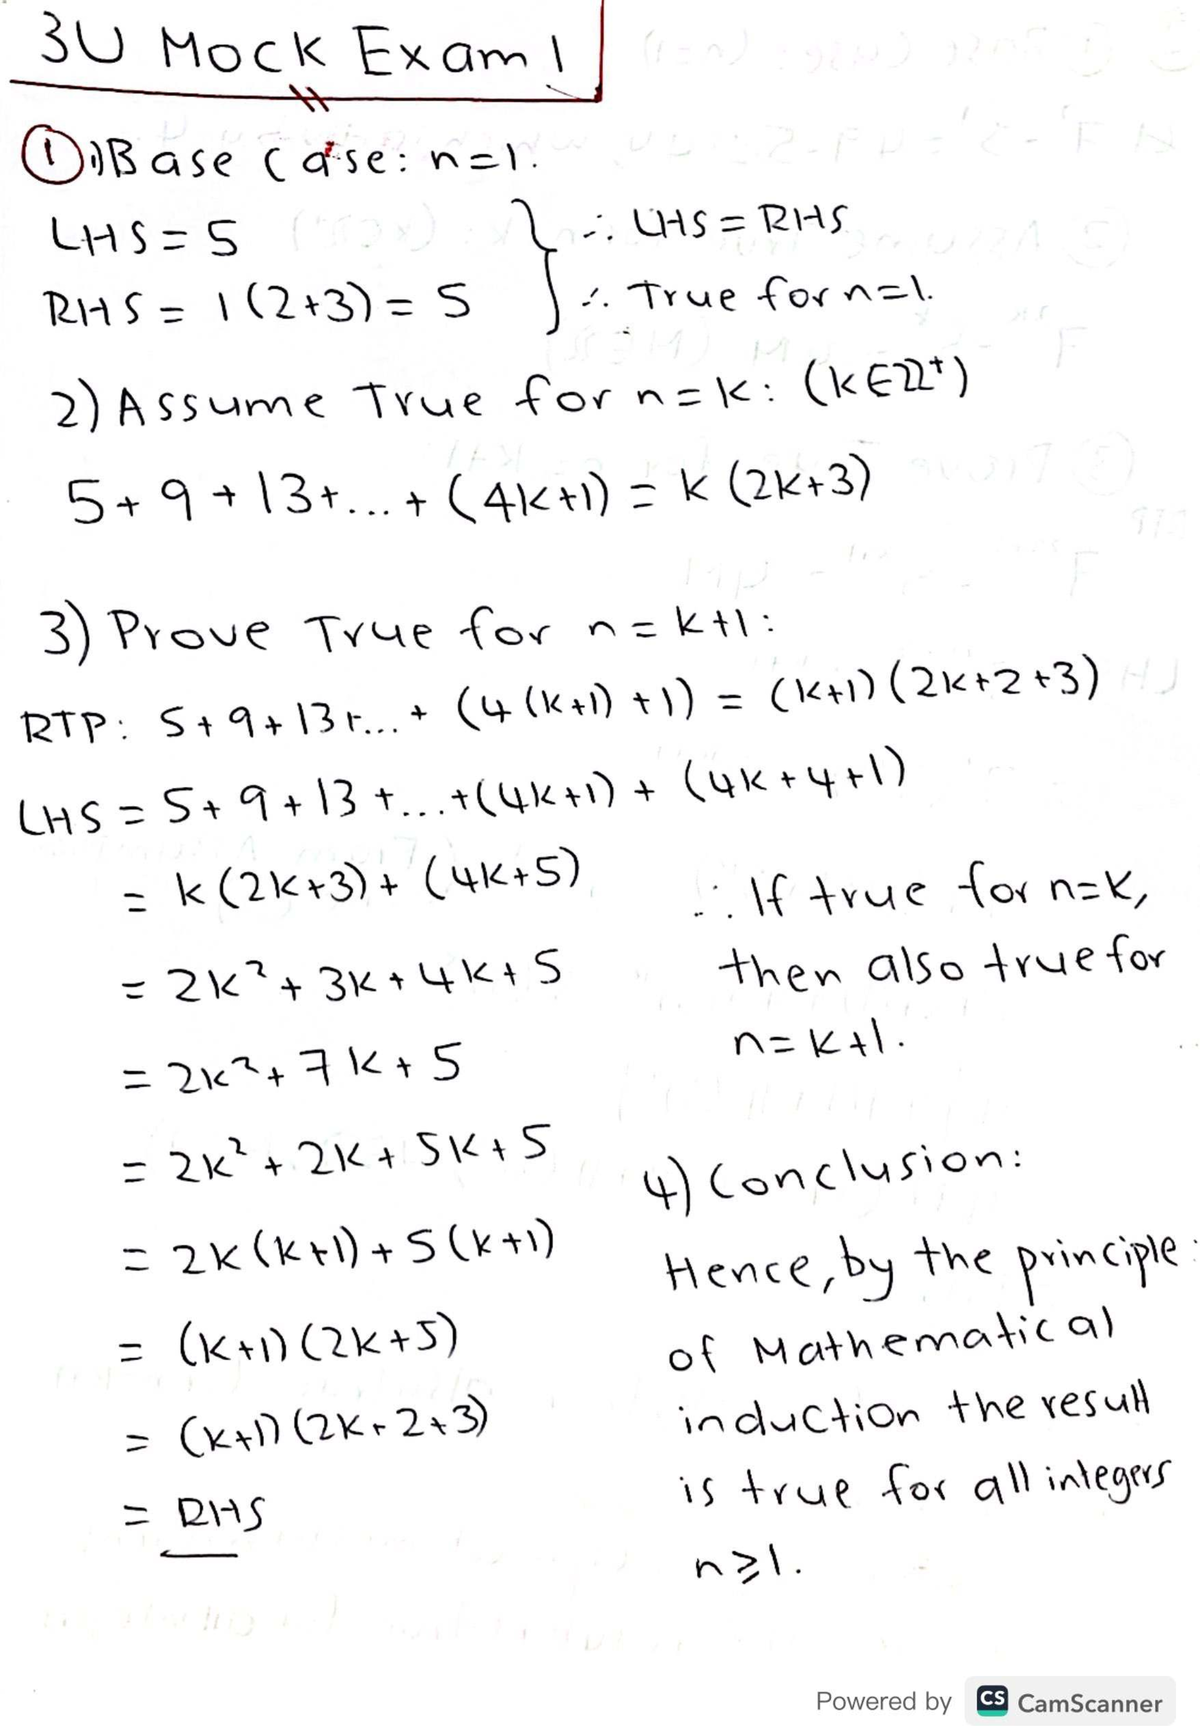 3U Mock Exam 1
① 1) Base case: n=1.
LHS = 5
RHS = 1(2+3) = 5
∴ LHS = RHS
∴ True for n=1.
2) Assume True for n=k: (k∈ℤ⁺)
5+9+13+...+(4k+1) = k(2k+3)
3) Prove True for n=k+1:
RTP: 5+9+13+...+(4(k+1)+1) = (k+1)(2k+2+3)
LHS = 5+9+13+...+(4k+1)+(4k+4+1)
= k(2k+3)+(4k+5)
= 2k²+3k+4k+5
= 2k²+7k+5
= 2k²+2k+5k+5
= 2k(k+1)+5(k+1)
= (k+1)(2k+5)
= (k+1)(2k+2+3)
= RHS
∴ If true for n=k,
then also true for
n=k+1.
4) Conclusion:
Hence, by the principle
of Mathematical
induction the result
is true for all integers
n≥1.
Powered by CS CamScanner